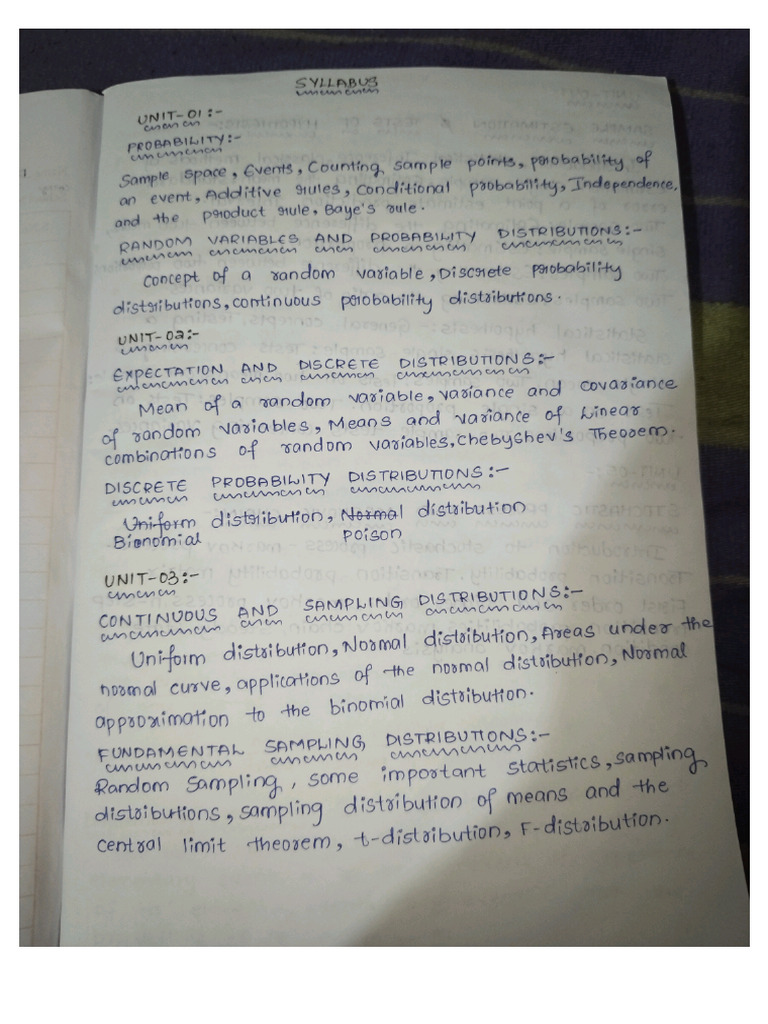 SYLLABUS
UNIT-01:-
PROBABILITY:-
Sample space, Events, Counting sample points, probability of
an event, Additive rules, Conditional probability, Independence,
and the product rule, Baye's rule.
RANDOM VARIABLES AND PROBABILITY DISTRIBUTIONS:-
Concept of a random variable, Discrete probability
distributions, continuous probability distributions.
UNIT-02:-
EXPECTATION AND DISCRETE DISTRIBUTIONS:-
Mean of a random variable, variance and covariance
of random variables, Means and variance of Linear
combinations of random variables, Chebyshev's Theorem.
DISCRETE PROBABILITY DISTRIBUTIONS:-
Uniform distribution, Normal distribution
Bionomial poison
UNIT-03:-
CONTINUOUS AND SAMPLING DISTRIBUTIONS:-
Uniform distribution, Normal distribution, Areas under the
normal curve, applications of the normal distribution, Normal
approximation to the binomial distribution.
FUNDAMENTAL SAMPLING DISTRIBUTIONS:-
Random Sampling, some important statistics, sampling
distributions, sampling distribution of means and the
central limit theorem, t-distribution, F-distribution.